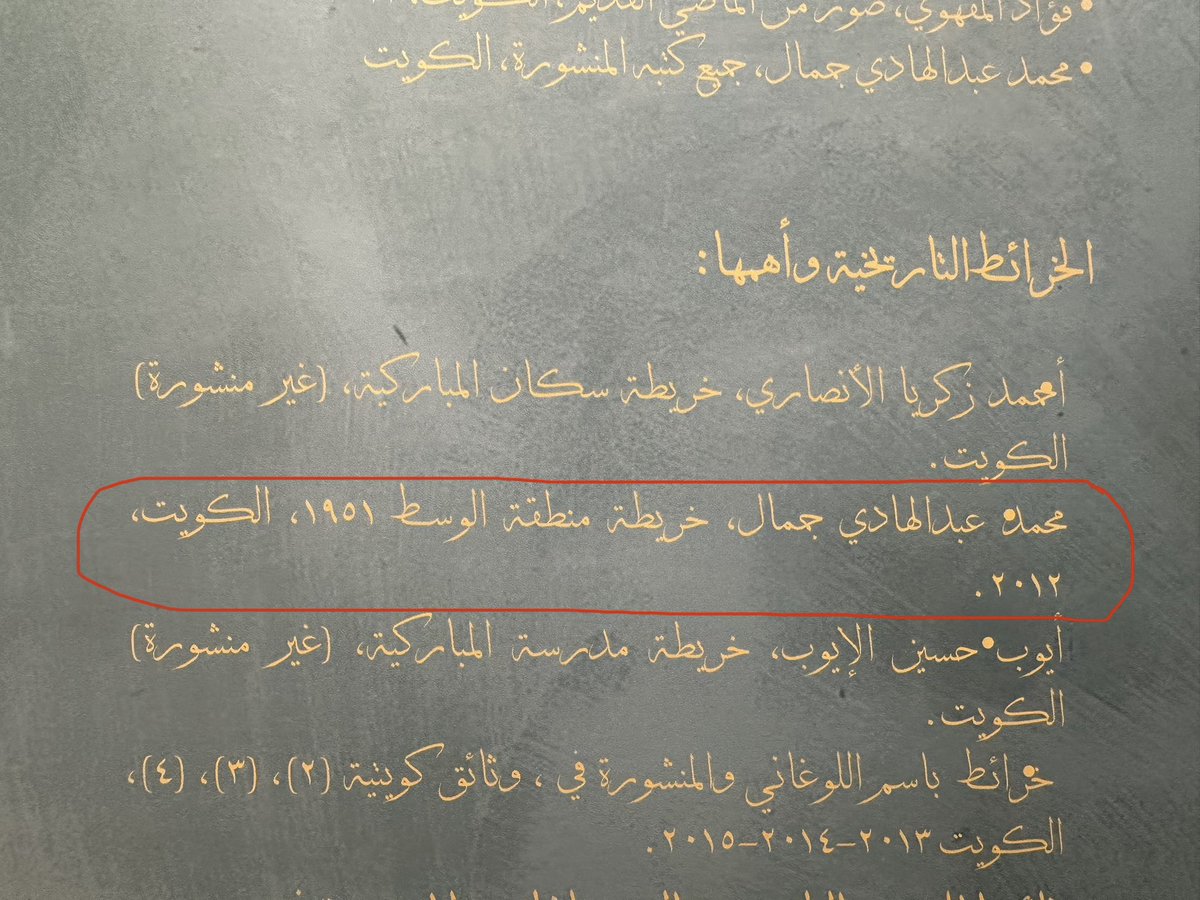 • فؤاد المقهوي، صور من الماضي القديم، الكويت،
• محمد عبدالهادي جمال، جميع كتبه المنشورة، الكويت
الخرائط التاريخية وأهمها:
أحمد زكريا الأنصاري، خريطة سكان المباركية، (غير منشورة)
الكويت.
محمد عبدالهادي جمال، خريطة منطقة الوسط ١٩٥١، الكويت،
٢٠١٢.
أيوب حسين الإيوب، خريطة مدرسة المباركية، (غير منشورة)
الكويت.
خرائط باسم اللوغاني والمنشورة في ، وثائق كويتية (٢)، (٣)، (٤)،
الكويت ٢٠١٣-٢٠١٤-٢٠١٥.